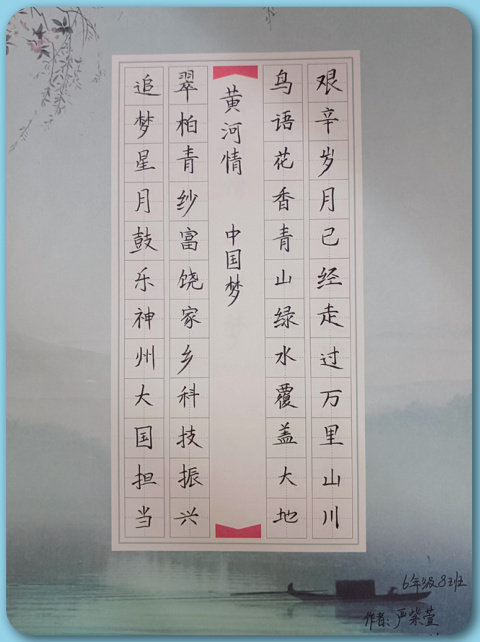 艰辛岁月已经走过万里山川
鸟语花香青山绿水覆盖大地
黄河情 中国梦
翠柏青纱富饶家乡科技振兴
追梦星月鼓乐神州大国担当
6年级8班
作者:严紫萱